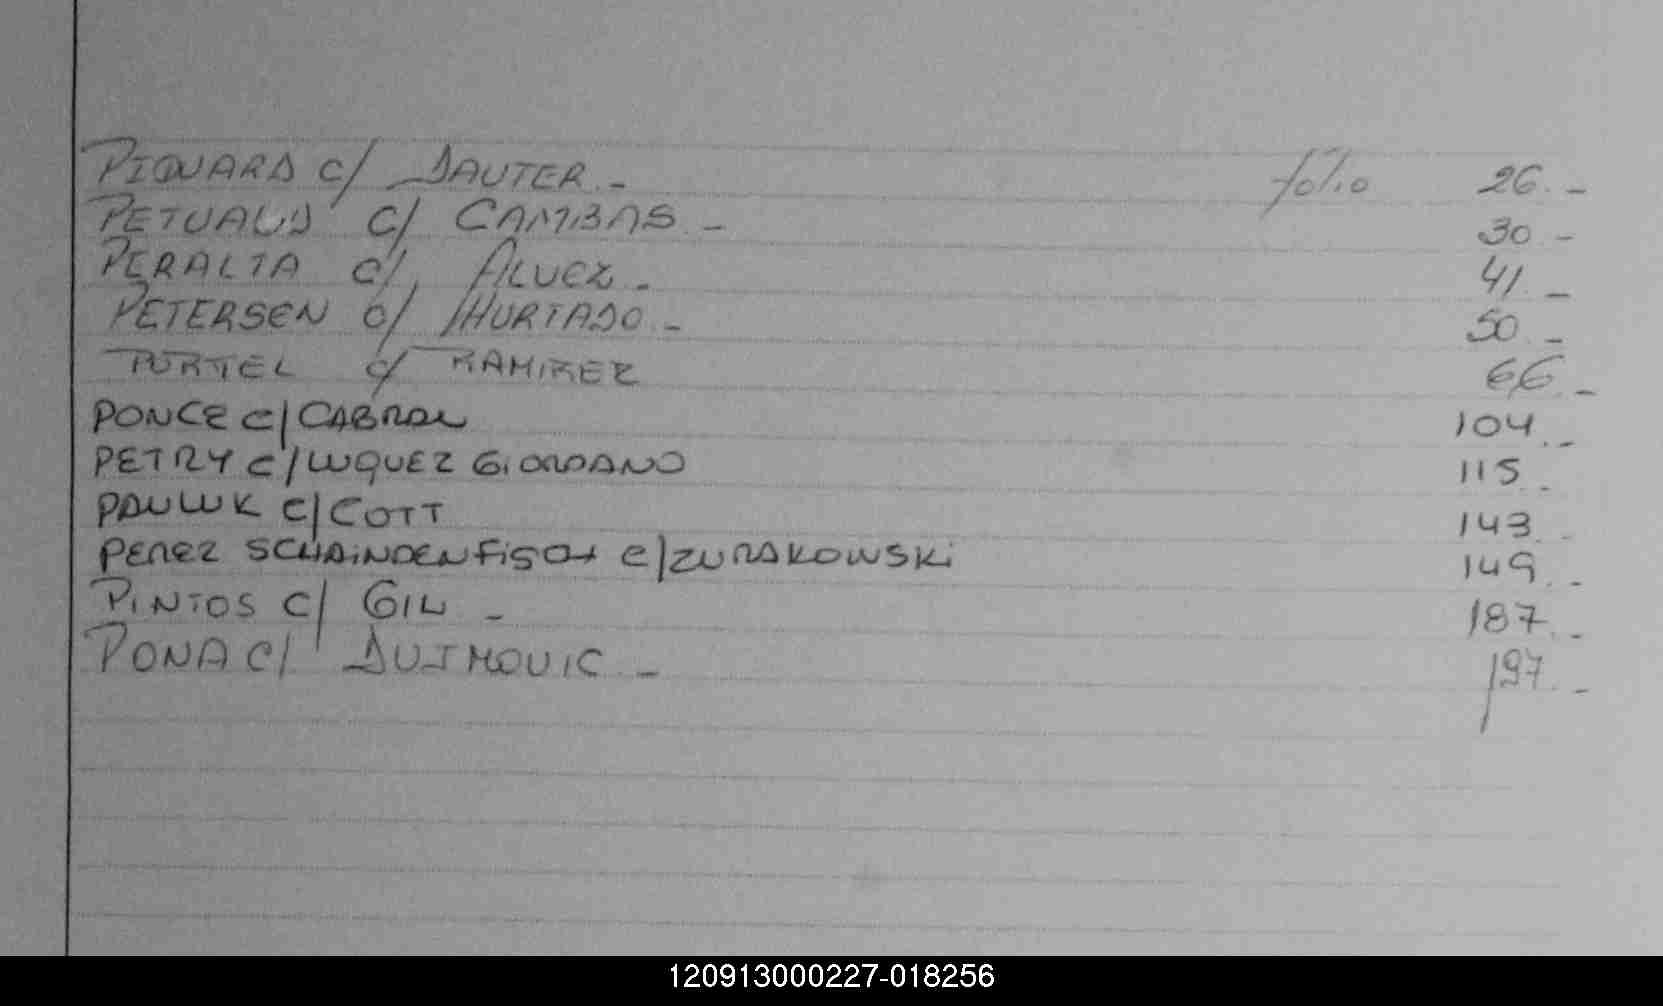 PIQUARD c/ DAUTER.- folio 26.-
PETUAUD c/ CAMBAS.- 30.-
PERALTA c/ ALVEZ.- 41.-
PETERSEN c/ HURTADO.- 50.-
PORTEL c/ RAMIREZ 66.-
PONCE c/ CABRAL 104.-
PETRY c/ LUQUEZ GIORDANO 115.-
PAWLUK c/ COTT 143.-
PEREZ c/ ZURAKOWSKI 149.-
PINTOS c/ GIL - 187.-
PONA c/ DUJMOVIC - 197.-
120913000227-018256